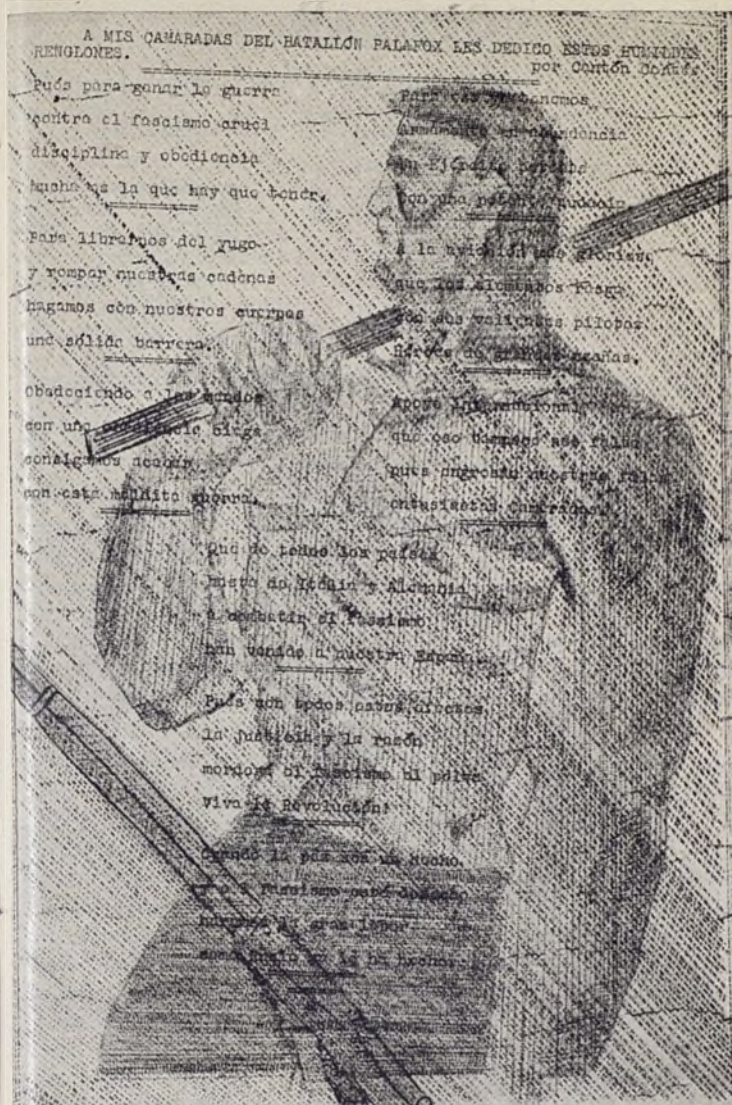 A MIS CAMARADAS DEL BATALLÓN PALAFOX LES DEDICO ESTOS HUMILDES
RENGLONES.
por Contón
Pués para ganar la guerra
contra el fascismo cruel
disciplina y obediencia
mucha es la que hay que tener.
Para librarnos del yugo
y romper nuestras cadenas
hagamos con nuestros cuerpos
una sólida barrera.
Obedeciendo a los mandos
con una obediencia ciega
consigamos acabar
con esta maldita guerra.
Para
Armamento en abundancia
un Ejército
con una potente
A la aviación más gloriosa
que los elementos rasga
con sus valientes pilotos
Héroes de grandes hazañas.
Apoyo Internacional
que eso tampoco nos falta
pues engrosan nuestras filas
entusiastas camaradas.
Que de todos los países
hasta de Italia y Alemania
a combatir el fascismo
han venido a nuestra España.
Pués con todos estos
la justicia y la razón
morderá el fascismo el polvo
Viva la Revolución!
Cuando la paz sea un hecho
y el fascismo esté deshecho
haremos la gran labor
que Rusia ya la ha hecho.